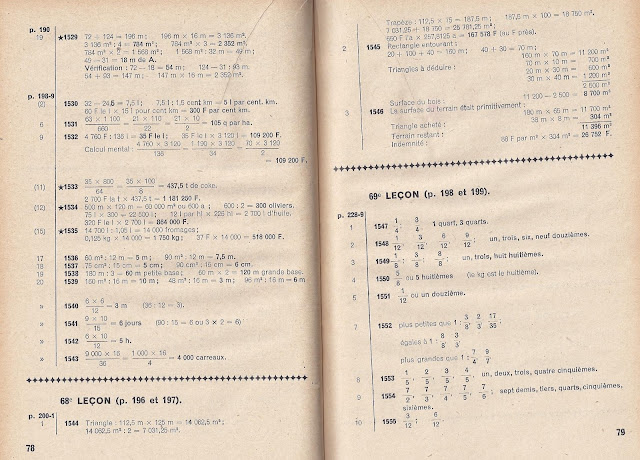 p. 190
19 ★1529 72 + 124 = 196 m; 196 m × 16 m = 3 136 m².
3 136 m² : 4 = 784 m²; 784 m² × 3 = 2 352 m².
784 m² × 2 = 1 568 m²; 1 568 m² : 32 m = 49 m;
49 + 31 = 18 m de A.
Vérification : 72 - 18 = 54 m; 124 - 31 : 93 m.
54 + 93 = 147 m; 147 m × 16 m = 2 352 m².
p. 198-9
(2) 1530 32 - 24,5 = 7,5 l; 7,5 l : 1,5 cent km = 5 l par cent. km.
60 F le l × 15 l pour cent km : 5 = F par cent. km.
6 1531 63 × 1 100 / 660 = 21 × 110 / 22 = 21 × 10 / 2 = 105 q par ha.
9 1532 4 760 F : 136 l = 35 F le l; 35 F le l × 3 120 l = 109 200 F.
Calcul mental : 4 760 × 3 120 / 136 = 1 190 × 3 120 / 34 = 70 × 3 120 / 2 = 109 200 F.
(11) ★1533 35 × 800 / 64 = 35 × 100 / 8 = 437,5 t de coke.
2 700 F le t × 437,5 t = 1 181 250 F.
(12) ★1534 500 m × 120 m = 60 000 m² ou 600 a; 600 : 2 = 300 oliviers.
75 l × 300 = 22 500 l; 12 l par hl × 225 hl = 2 700 l d'huile.
320 F le l × 2 700 l = 864 000 F.
(15) ★1535 14 700 l : 1,05 l = 14 000 fromages;
0,125 kg × 14 000 = 1 750 kg; 37 F × 14 000 = 518 000 F.
17 1536 60 m² : 12 m = 5 m; 90 m² : 12 m = 7,5 m.
18 1537 75 cm² : 15 cm = 5 cm; 90 cm² : 15 cm = 6 cm.
19 1538 180 m : 3 = 60 m petite base; 60 m × 2 = 120 m grande base.
20 1539 160 m² : 16 m = 10 m; 48 m² : 16 m = 3 m; 96 m² : 16 m = 6 m
» 1540 6 × 6 / 12 = 3 m (36 : 12 = 3).
» 1541 9 × 10 / 15 = 6 jours (90 : 15 = 6 ou 3 × 2 = 6)
» 1542 6 × 10 / 12 = 5 h.
» 1543 9 000 × 16 / 36 = 1 000 × 16 / 4 = 4 000 carreaux.
68e LEÇON (p. 196 et 197).
p. 200-1
1 1544 Triangle : 112,5 m × 125 m = 14 062,5 m²;
14 062,5 m² : 2 = 7 031,25 m².
78
Trapèze : 112,5 × 15 = 187,5 m; 187,5 m × 100 = 18 750 m².
7 031,25 + 18 750 = 25 781,25 m².
650 F l'a × 257,8125 a = 167 578 F (au F près).
2 1545 Rectangle entourant :
20 + 100 + 40 = 160 m; 40 + 30 = 70 m;
160 m × 70 m = 11 200 m²
Triangles à déduire : 70 m × 10 m = 700 m²
20 m × 30 m = 600 m²
30 m × 40 m = 1 200 m²
2 500 m²
Surface du bois : 11 200 - 2 500 = 8 700 m²
3 1546 La surface du terrain était primitivement :
180 m × 65 m = 11 700 m²
Triangle acheté : 38 m × 8 m = 304 m²
Terrain restant : 11 396 m²
Indemnité : 88 F par m² × 304 m² = 26 752 F.
69e LEÇON (p. 198 et 199).
p. 228-9
1 1547 1/4, 3/4. 1 quart, 3 quarts.
2 1548 1/12, 3/12, 6/12, 9/12; un, trois, six, neuf douzièmes.
3 1549 1/8, 3/8, 8/8; un, trois, huit huitièmes.
4 1550 5/8 ou 5 huitièmes (le kg est le huitième).
5 1551 1/12 ou un douzième.
7 1552 plus petites que 1 : 3/8, 2/3, 17/35,
égales à 1 : 8/8, 3/3
plus grandes que 1 : 7/4, 9/7
8 1553 1/5, 2/5, 3/5, 4/5 un, deux, trois, quatre cinquièmes.
9 1554 7/2, 7/3, 7/4, 7/5, 7/6; sept demis, tiers, quarts, cinquièmes,
sixièmes.
10 1555 3/12, 6/12,
79